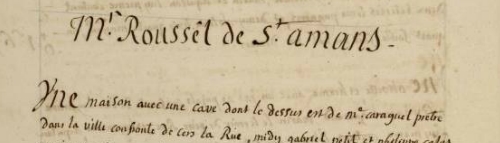 Mr. Roussel de St. amans.
Une maison avec une cave dont le dessus est de mr. caraguel prêtre
dans la ville confronte de cers la Rue, midy gabriel petit et